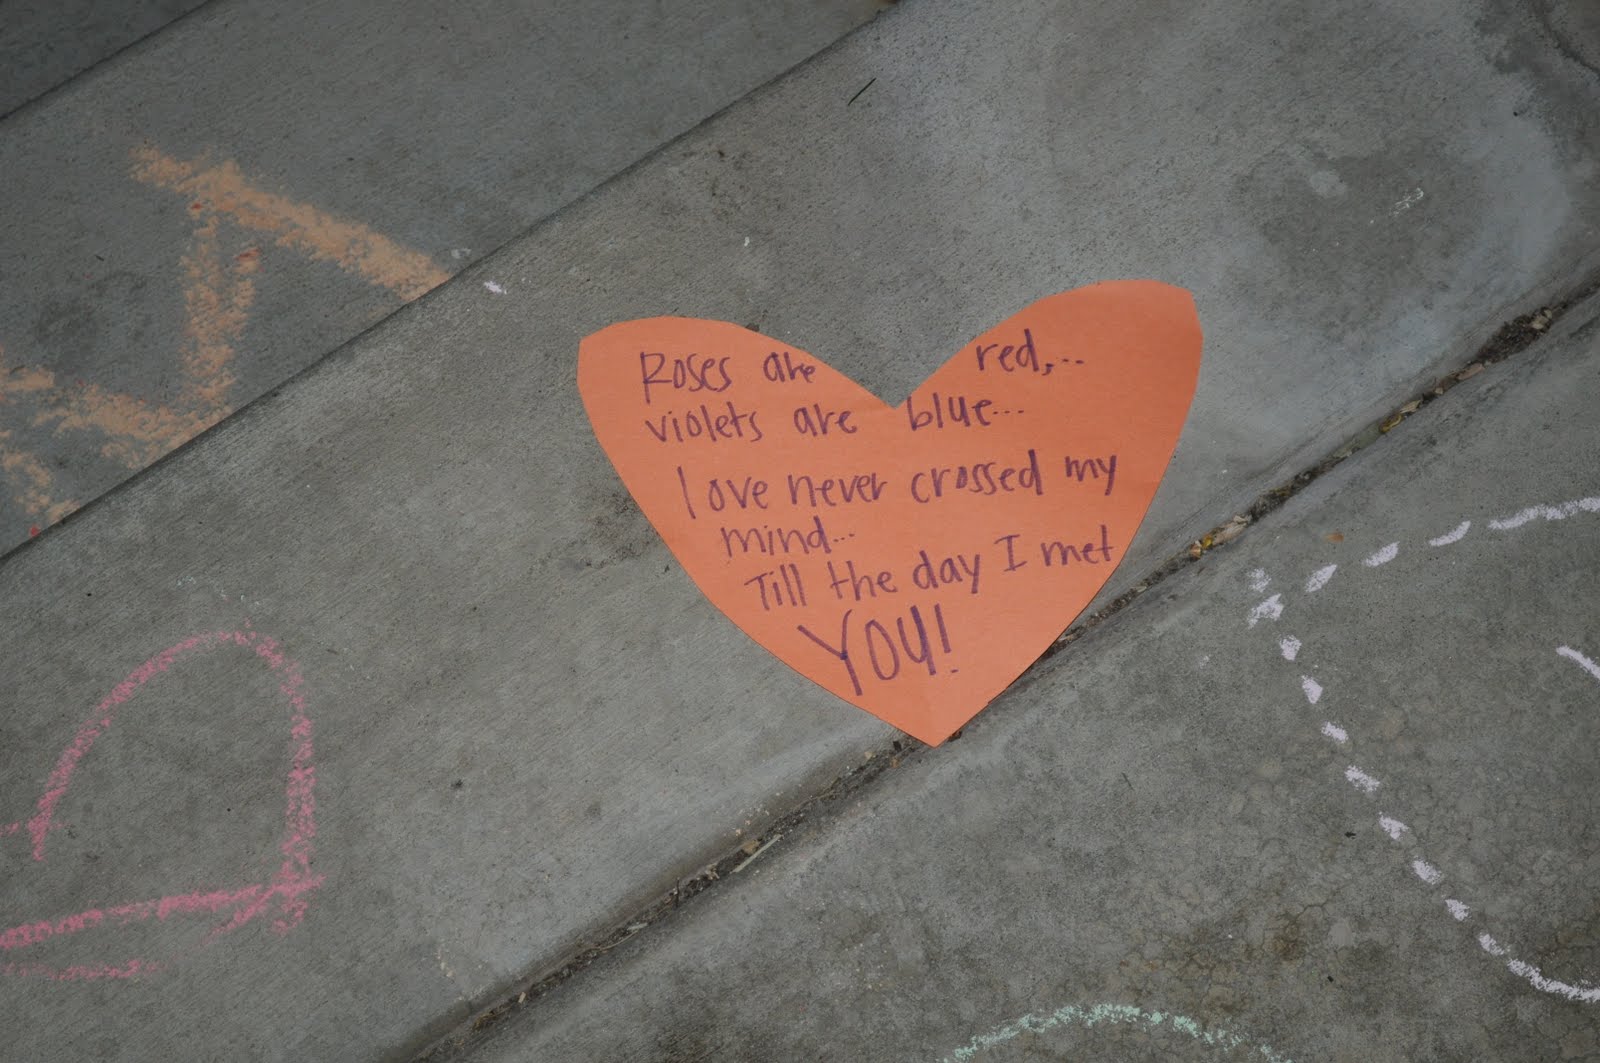 Roses are red,...
violets are blue...
love never crossed my
mind...
Till the day I met
YOU!